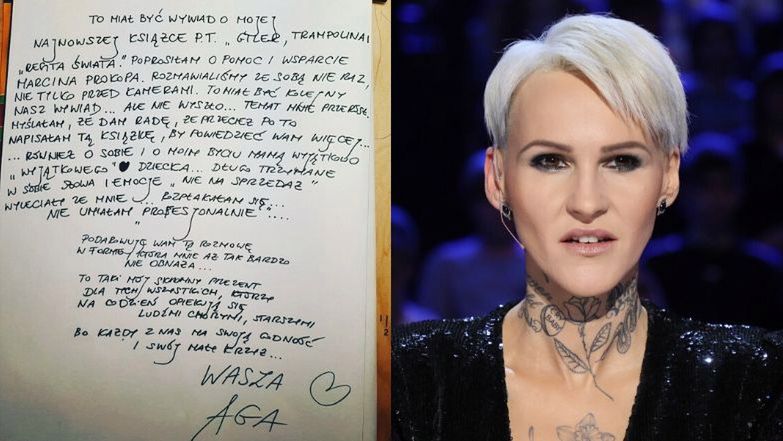 TO MIAŁ BYĆ WYWIAD O MOJEJ
NAJNOWSZEJ KSIĄŻCE P.T. „GTLER, TRAMPOLINA I
„RESZTA ŚWIATA." POPROSIŁAM O POMOC I WSPARCIE
MARCINA PROKOPA. ROZMAWIALIŚMY ZE SOBĄ NIE RAZ,
NIE TYLKO PRZED KAMERAMI. TO MIAŁ BYĆ KOLEJNY
NASZ WYWIAD... ALE NIE WYSZŁO... TEMAT MNIE
MYŚLAŁAM, ŻE DAM RADĘ, ŻE PRZECIEŻ PO TO
NAPISAŁAM TĄ KSIĄŻKĘ, BY POWIEDZIEĆ WAM WIĘCEJ...
... RÓWNIEŻ O SOBIE I O MOIM BYCIU MAMĄ WYJĄTKOWO
„WYJĄTKOWEGO" DZIECKA... DŁUGO TRZYMANE
W SOBIE SŁOWA I EMOCJE „NIE NA SPRZEDAŻ"
WYLECIAŁY ZE MNIE... ROZPŁAKAŁAM SIĘ...
NIE UMIAŁAM „PROFESJONALNIE"....
PODAROWUJĘ WAM TĄ ROZMOWĘ
W FORMIE, KTÓRA MNIE AŻ TAK BARDZO
NIE OBNAŻA...
TO TAKI MÓJ SKROMNY PREZENT
DLA TYCH WSZYSTKICH, KTÓRZY
NA CODZIEŃ OPIEKUJĄ SIĘ
LUDŹMI CHORYMI, STARSZYMI
BO KAŻDY Z NAS MA SWOJĄ GODNOŚĆ
I SWÓJ MAŁY KRZYŻ...
WASZA
AGA